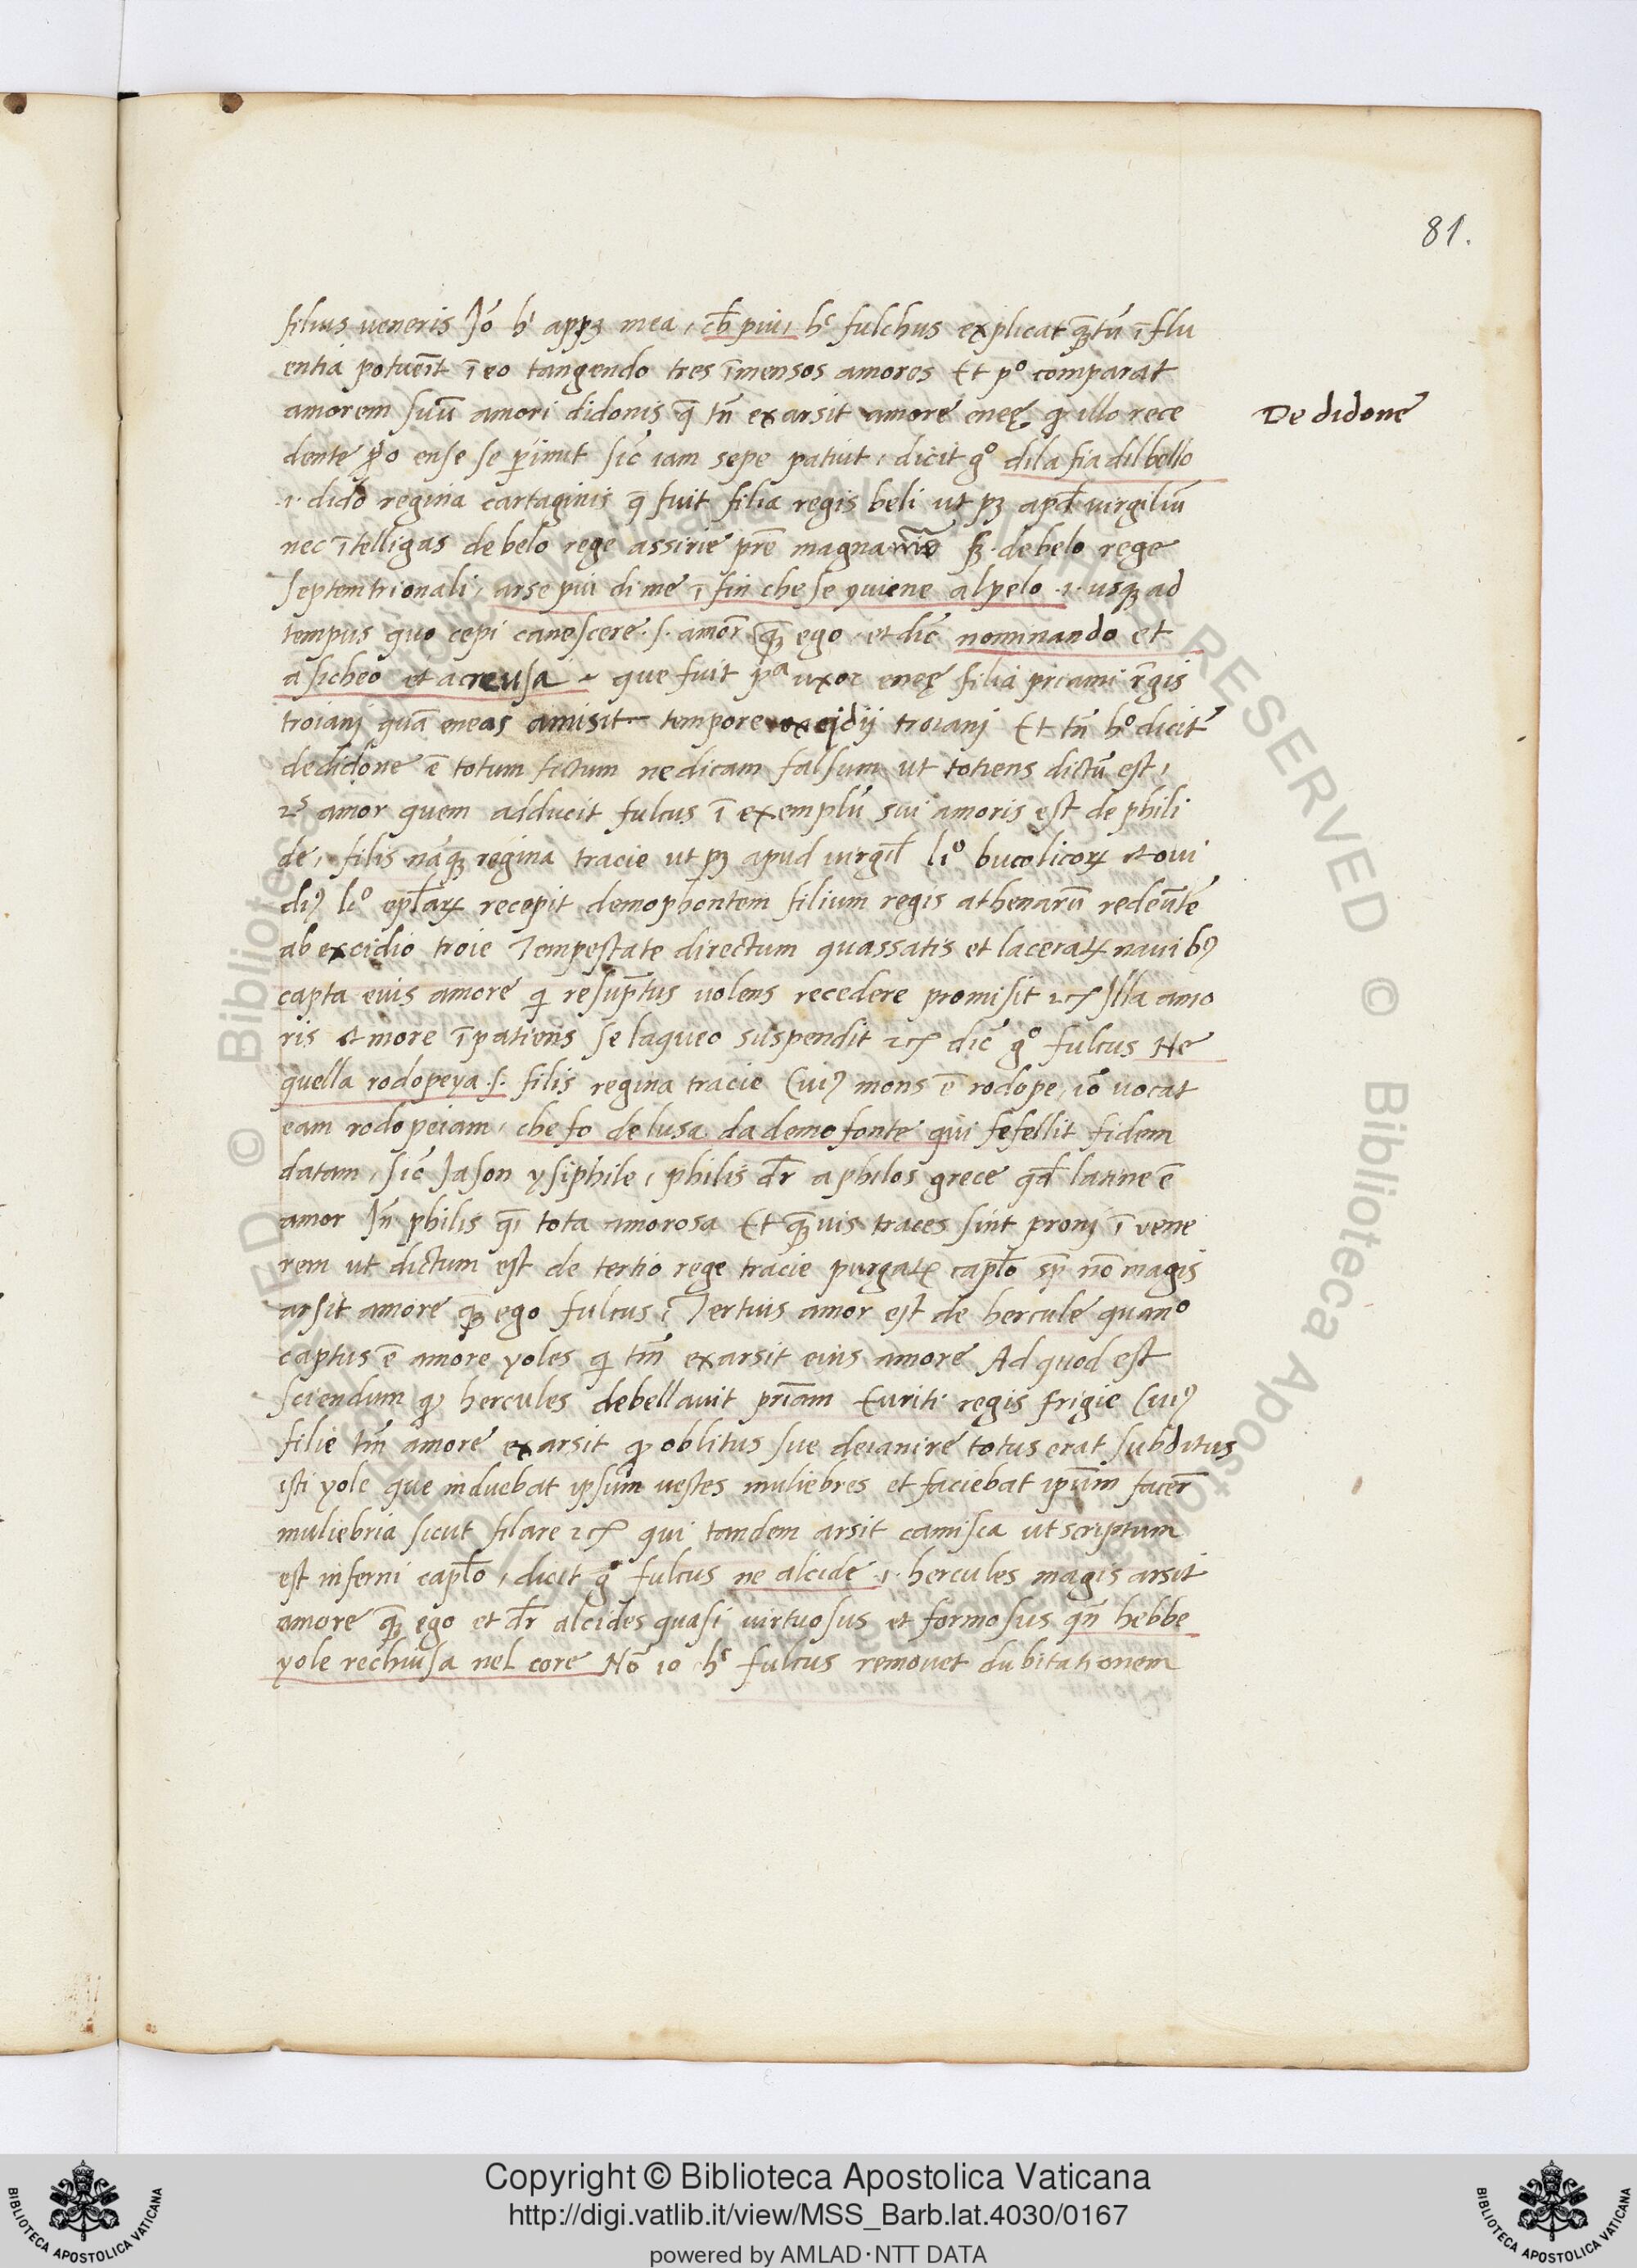 81.
filius veneris Iō hͨ appꝫ mea, cb̄ piu, hͨ fulchus explicat qꝫtū īflu
entia potuēīt ī eo tangendo tres īmensos amores Et p̊ comparat
amorem suū amori didonis q̄ tn̄ exarsit amore eneę qꝫ illo rece
De didone
dente ꝓo ense se ꝑimit sic̄ iam sepe patuit, dicit g̊ dila fia dil bello
.i. dido regina cartaginis q̄ fuit filia regis beli ut pꝫ apd̄ virgiliū
nec ītelligas de belo rege assirie pr̄e magna sꝫ de belo rege
septemtrionali, arse piu di me ī fin che se 9viene al pelo .i. usqꝫ ad
tempus quo cepi canescere .s. amor̄ qꝫ ego et dic̄ nominando et
a sicheo et a creusa que fuit pͣ uxor eneę filia priami r̄gis
troianj quā eneas amisit tempore excidij troianj Et tn̄ h̊ dicit̄
de didone ē totum fictum ne dicam falsum ut totiens dictū est,
2ˢ amor quem adducit fulcus ī exemplū sui amoris est de phili
de, filis nāqꝫ regina tracie ut pꝫ apud virgil̄ li̊ bucolicoꝝ et oui
diꝰ li̊ epl̄aꝝ recepit demophontem filium regis athenarū redeūte
ab excidio troie tempestate directum quassatis et laceratꝭ nauibꝰ
capta euis amore qi resūptus uolens recedere promisit ⁊cꝭ Illa amo
ris et more īpatiens se laqueo suspendit ⁊cꝭ dic̄ g̊ fulcus Ne
quella rodopeya .s. filis regina tracie Cuiꝰ mons ē rodope, iō vocat
eam rodopeiam, che fo delusa da demofonte qui fefellit fidem
datam, sic̄ Jason ysiphile, philis dr̄ a philos grece qd̄ latine ē
amor In̄ philis q̄i tota amorosa Et qꝫuis traces sint pronj ī vene
rem ut dictum est de tertio rege tracie purgatꝭ capl̄o nō magis
arsit amore qꝫ ego fulcus, Tertius amor est de hercule quan̊
captus ē amore yoles qi tm̄ exarsit eius amore Ad quod est
sciendum qꝫ hercules debellavit pr̄iam Euriti regis frigie Cuiꝰ
filie tm̄ amore exarsit qꝫ oblitus sue deianire totus erat subditus
isti yole que induebat ipsum vestes muliebres et faciebat ipūm facer̄
muliebria sicut filare ⁊cꝭ qui tandem arsit camisca ut scriptum
est inferni capl̄o, dicit g̊ fulcus ne alcide .i. hercules magis arsit
amore qꝫ ego et dr̄ alcides quasi virtuosus et formosus qn̄ hebbe
yole rechiusa nel core Nō io hͨ fulcus removet dubitationem
Copyright © Biblioteca Apostolica Vaticana
http://digi.vatlib.it/view/MSS_Barb.lat.4030/0167
powered by AMLAD·NTT DATA
BIBLIOTECA APOSTOLICA VATICANA
BIBLIOTECA APOSTOLICA VATICANA